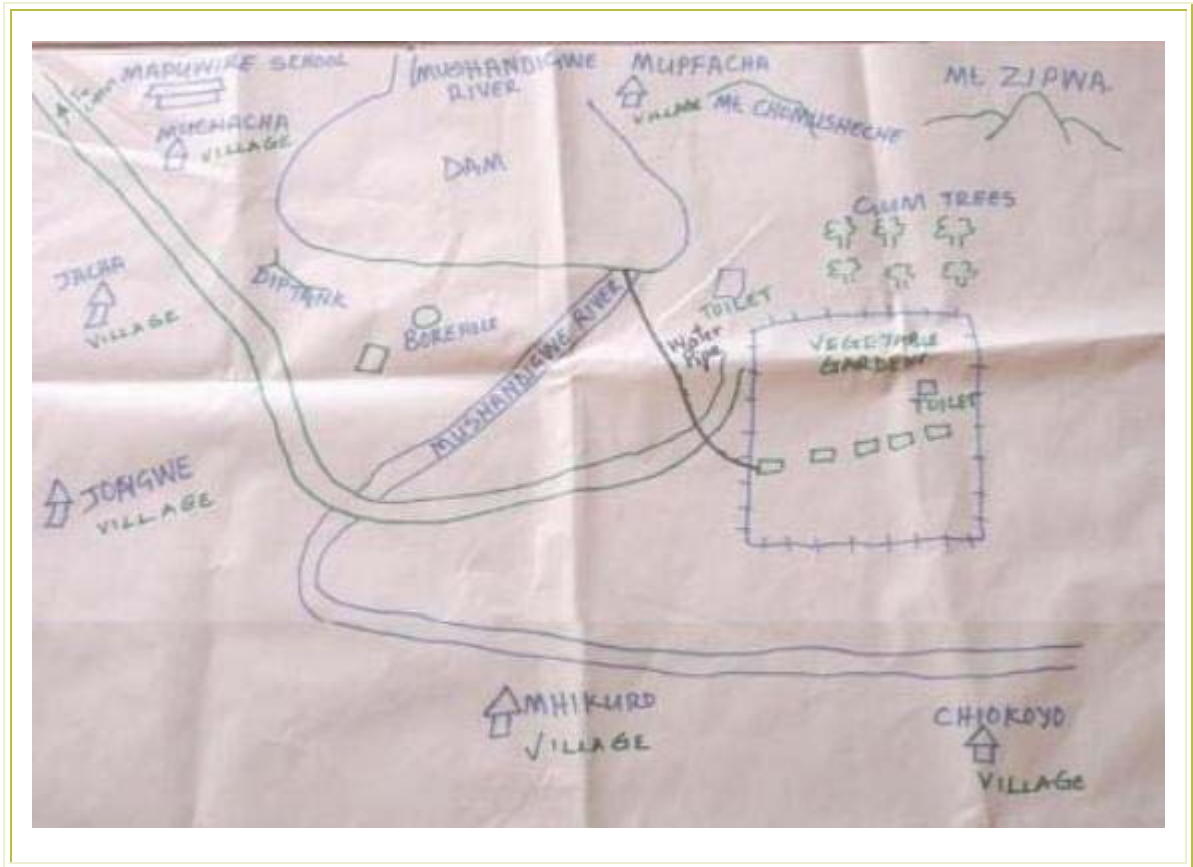 MAPUWIRE SCHOOL
MUSHANDIGWE
RIVER
MUPFACHA
VILLAGE
Mt. ZIPWA
Mt CHOMUSHECHE
To
MUCHACHA
VILLAGE
DAM
GUM TREES
JACHA
VILLAGE
DIPTANK
BOREHOLE
TOILET
MUSHANDIGWE RIVER
Water
Pipe
VEGETABLE
GARDEN
TOILET
JONGWE
VILLAGE
MHIKURO
VILLAGE
CHIOKOYO
VILLAGE